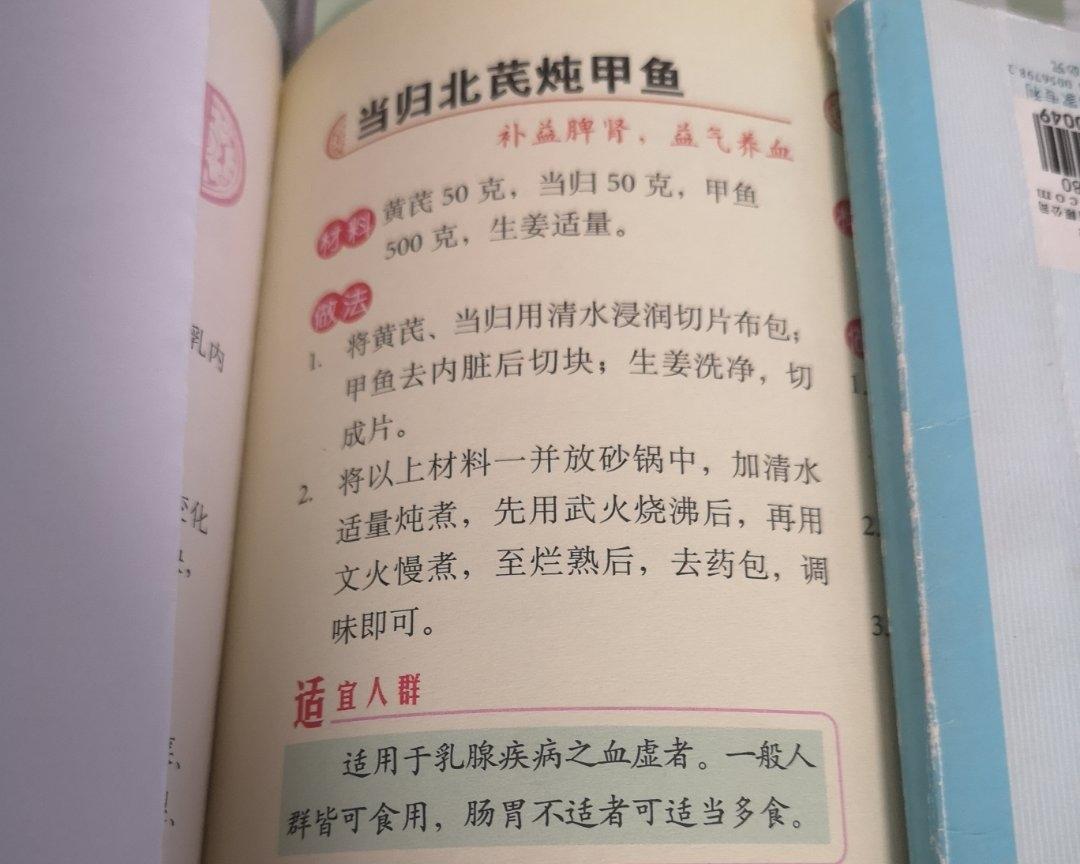 当归北芪炖甲鱼
补益脾肾，益气养血
材料
黄芪 50 克，当归 50 克，甲鱼
500 克，生姜适量。
做法
1. 将黄芪、当归用清水浸润切片布包；
甲鱼去内脏后切块；生姜洗净，切
成片。
2. 将以上材料一并放砂锅中，加清水
适量炖煮，先用武火烧沸后，再用
文火慢煮，至烂熟后，去药包，调
味即可。
适宜人群
适用于乳腺疾病之血虚者。一般人
群皆可食用，肠胃不适者可适当多食。
乳内
变化
1.
2.
3.
0056798.2
0049